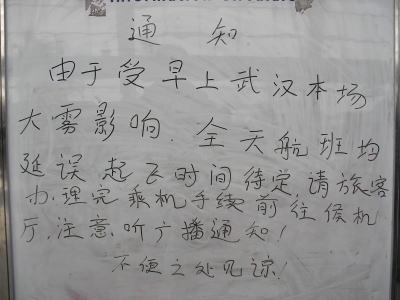 通知
由于受早上武汉本场
大雾影响.全天航班均
延误.起飞时间待定,请旅客
办.理完乘机手续前往候机
厅.注意.听广播通知!
不便之处见谅!